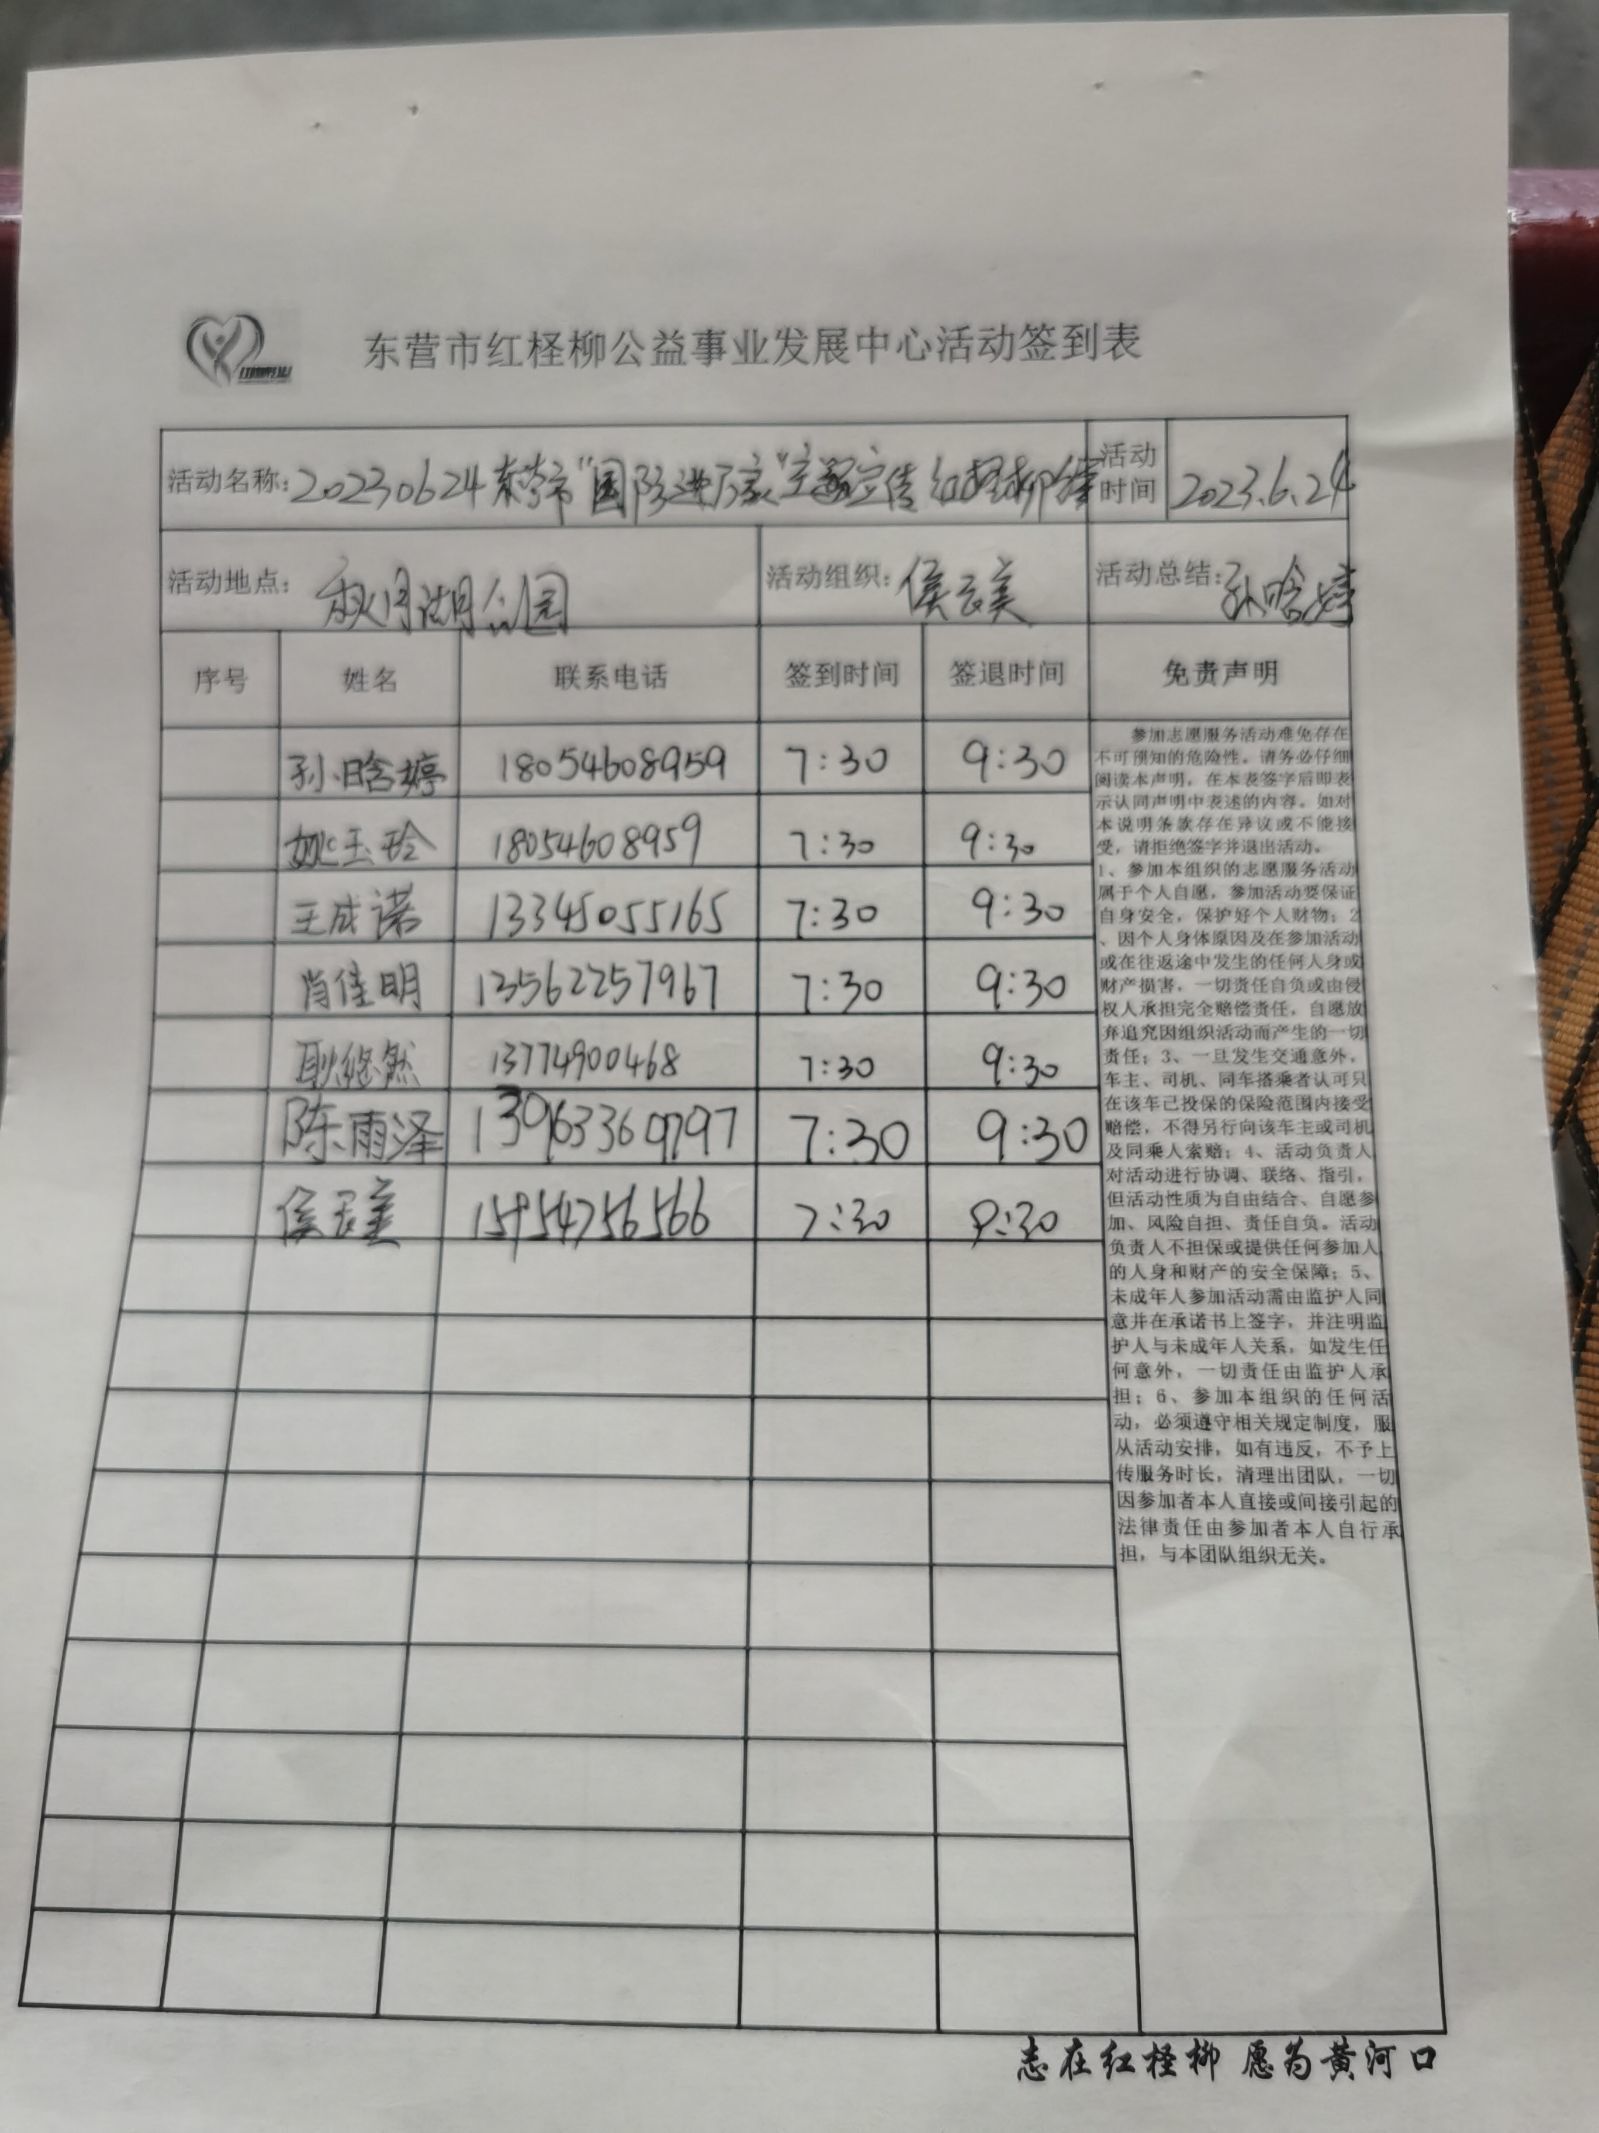 东营市红柽柳公益事业发展中心活动签到表
活动名称: 20230624东营市“国防进万家”主题宣传红柽柳 活动时间 2023.6.24
活动地点: 秋月湖公园 活动组织: 侯云美 活动总结: 孙晗婷
序号 姓名 联系电话 签到时间 签退时间 免责声明
孙晗婷 18054608959 7:30 9:30
姚玉玲 18054608959 7:30 9:30
王成诺 13345055165 7:30 9:30
肖佳明 13562257967 7:30 9:30
耿悠然 13774900468 7:30 9:30
陈雨泽 13963360797 7:30 9:30
侯云美 15954756566 7:30 9:30
参加志愿服务活动难免存在
不可预知的危险性。请务必仔细
阅读本声明，在本表签字后即表
示认同声明中表述的内容。如对
本说明条款存在异议或不能接
受，请拒绝签字并退出活动。
1、参加本组织的志愿服务活动
属于个人自愿，参加活动要保证
自身安全，保护好个人财物；2
、因个人身体原因及在参加活动
或在往返途中发生的任何人身或
财产损害，一切责任自负或由侵
权人承担完全赔偿责任，自愿放
弃追究因组织活动而产生的一切
责任；3、一旦发生交通意外，
车主、司机、同车搭乘者认可只
在该车己投保的保险范围内接受
赔偿，不得另行向该车主或司机
及同乘人索赔；4、活动负责人
对活动进行协调、联络、指引，
但活动性质为自由结合、自愿参
加、风险自担、责任自负。活动
负责人不担保或提供任何参加人
的人身和财产的安全保障；5、
未成年人参加活动需由监护人同
意并在承诺书上签字，并注明监
护人与未成年人关系，如发生任
何意外，一切责任由监护人承
担；6、参加本组织的任何活
动，必须遵守相关规定制度，服
从活动安排，如有违反，不予上
传服务时长，清理出团队，一切
因参加者本人直接或间接引起的
法律责任由参加者本人自行承
担，与本团队组织无关。
志在红柽柳 愿为黄河口